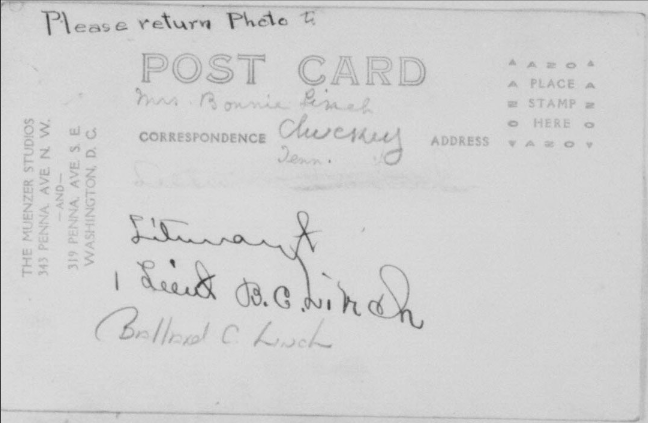 Please return Photo to
POST CARD
Mrs. Bonnie Linch
CORRESPONDENCE
Chuckey
ADDRESS
Tenn.
AZOA
PLACE
STAMP
HERE
AZO
THE MUENZER STUDIOS
345 PENNA. AVE. N. W.
—AND—
319 PENNA. AVE. S. E.
WASHINGTON, D. C.
1 Lieut B.C. Linch
Ballard C. Linch